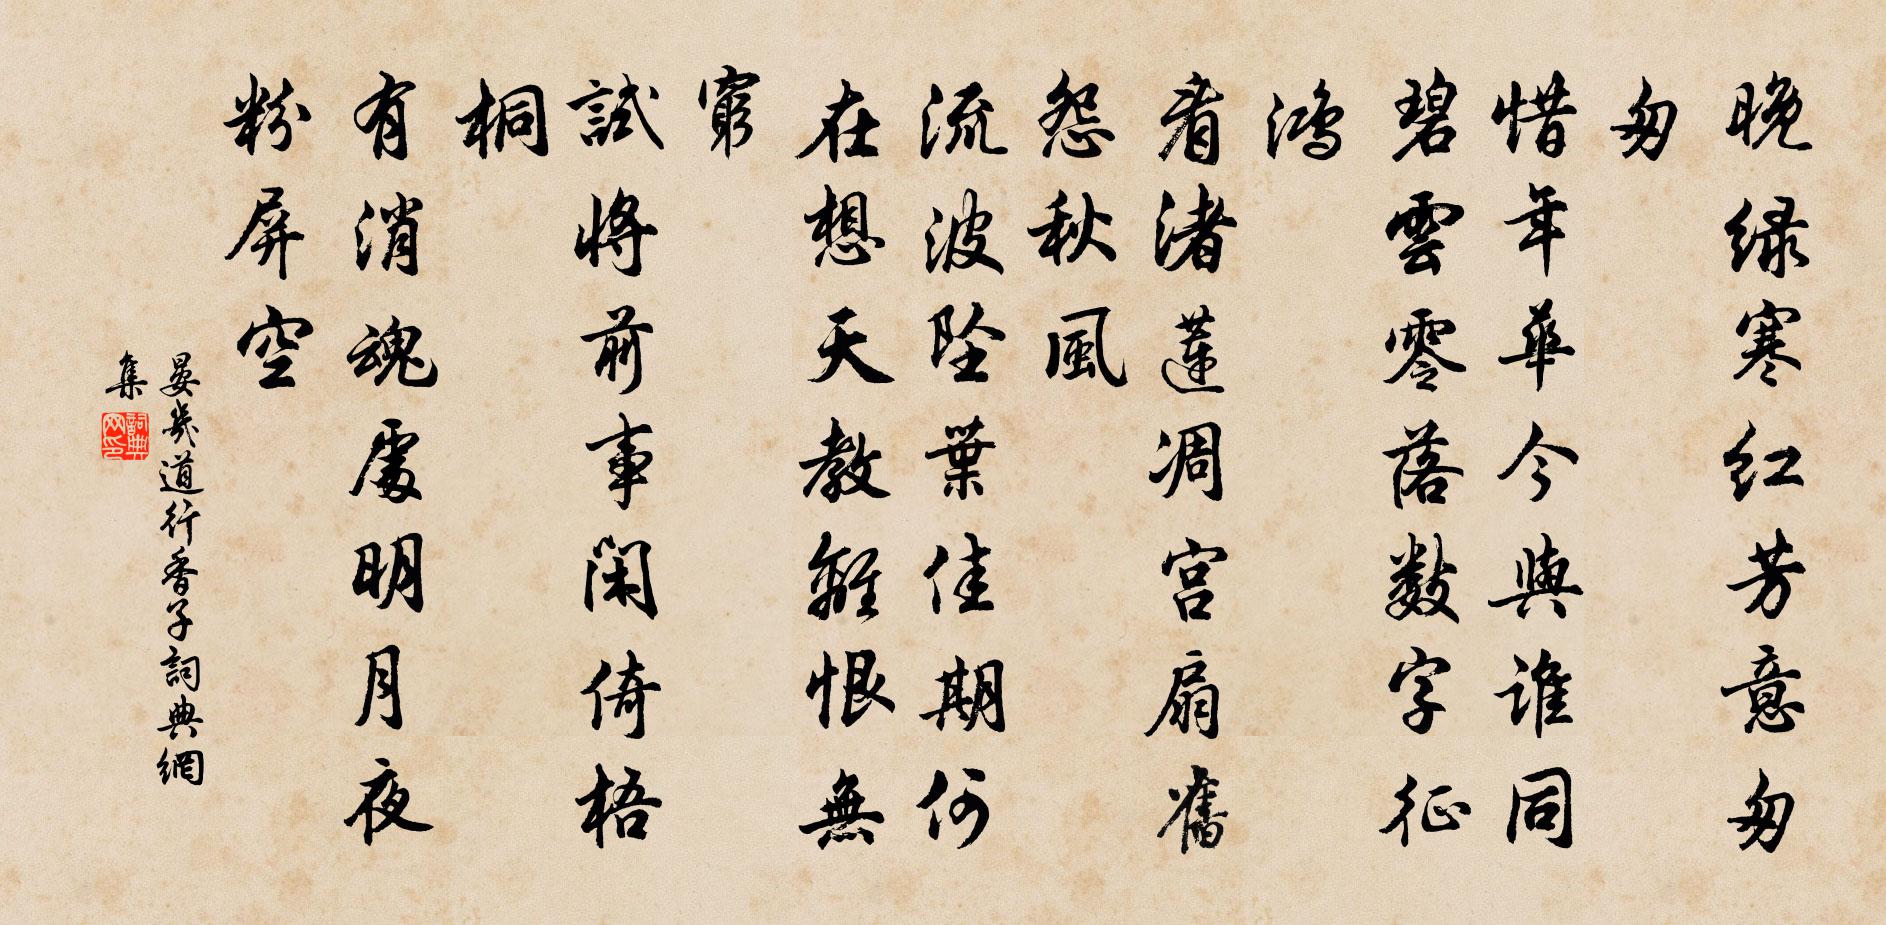 晚绿寒红芳意匆
匆
惜年華今與谁同
碧雲零落數字征
鴻
看渚蓮凋宫扇舊
怨秋風
流波坠葉佳期何
在想天教離恨無
窮
試將前事閑倚梧
桐
有消魂處明月夜
粉屏空
晏幾道行香子詞典網
集
詞典网印